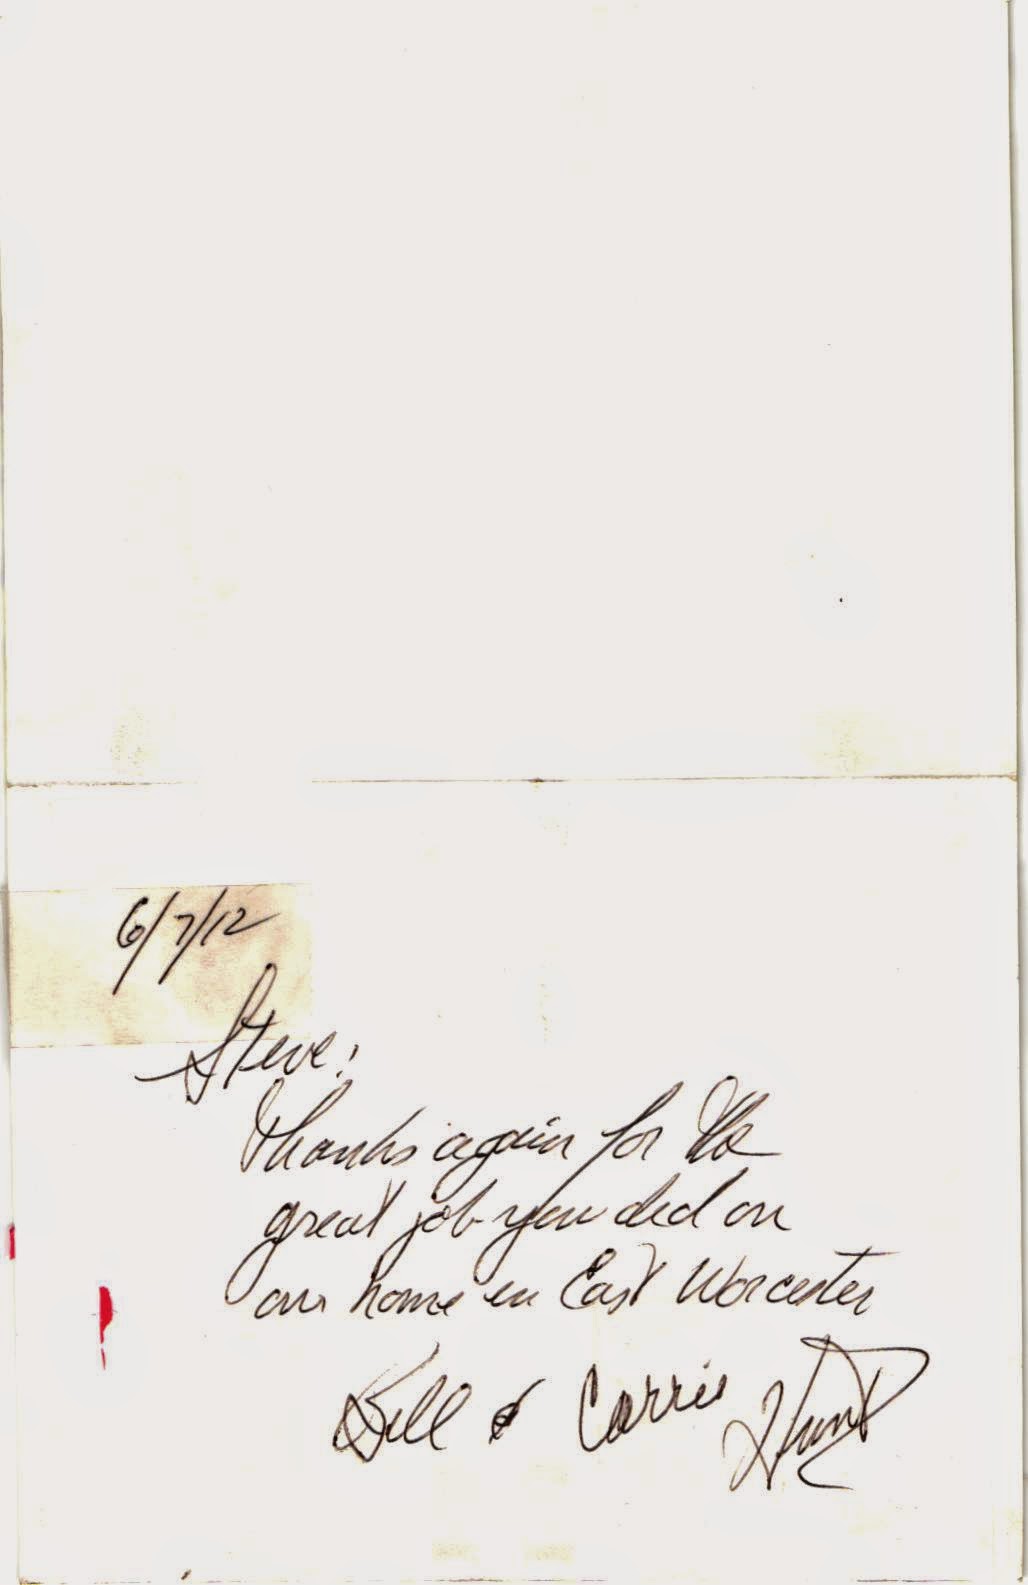 6/7/12
Steve:
Thanks again for the
great job you did on
our home in East Worcester
Bill & Carrie Hunt